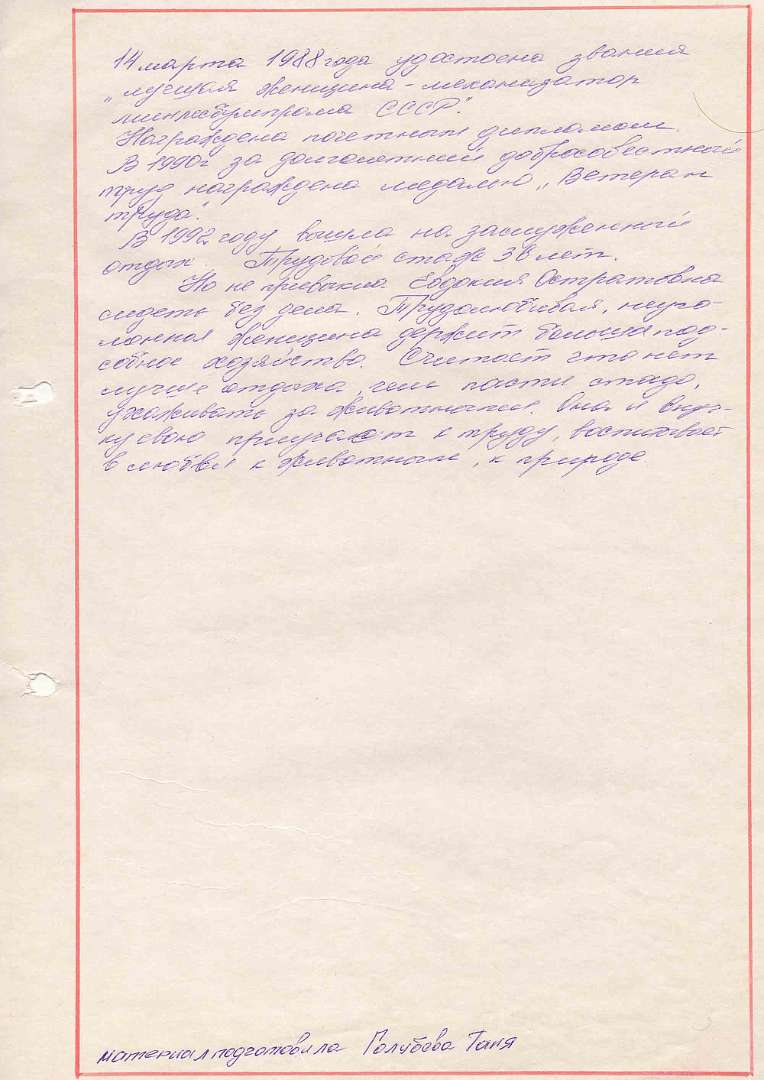 14 марта 1988 года удостоена звания
„лучшая женщина - механизатор
минлесбумпрома СССР".
Награждена почетным дипломом.
В 1990г за долголетний добросовестный
труд награждена медалью „Ветеран
труда".
В 1992 году вышла на заслуженный
отдых. Трудовой стаж 38 лет.
Но не привыкла Евдокия Остратовна
сидеть без дела. Трудолюбивая, неуго-
монная женщина держит большое под-
собное хозяйство. Считает что нет
лучше отдыха, чем пасти стадо,
ухаживать за животными. Она и внуч-
ку свою приучает к труду, воспитывает
в любви к животным, к природе.
материал подготовила Голубева Таня